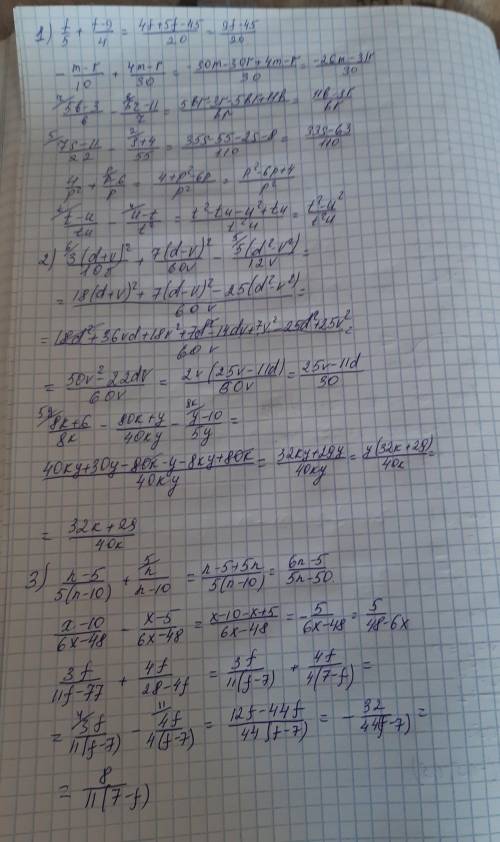 1) f/5 + (f-9)/4 = (4f+5f-45)/20 = (9f-45)/20
-(m-r)/10 + (4m-r)/30 = (-30m-30r+4m-r)/30 = (-26m-31r)/30
(5b-3)/b - (5r-11)/r = (5br-3r-5br+11b)/br = (11b-3r)/br
(7s-11)/22 - (s+4)/55 = (35s-55-2s-8)/110 = (33s-63)/110
4/p² + (p-6)/p = (4+p²-6p)/p² = (p²-6p+4)/p²
(t-u)/tu - (u-t)/t² = (t²-tu-u²+tu)/t²u = (t²-u²)/t²u
2) 3(d+v)²/10v + 7(d-v)²/60v - 5(d²-v²)/12v =
= (18(d+v)²+7(d-v)²-25(d²-v²))/60v =
= (18d²+36vd+18v²+7d²-14dv+7v²-25d²+25v²)/60v =
= (50v²-22dv)/60v = 2v(25v-11d)/60v = (25v-11d)/30
(8k+6)/8k - (80k+y)/40ky - (y-10)/5y =
(40ky+30y-80k-y-8ky+80k)/40ky = (32ky+29y)/40ky = y(32k+29)/40k =
= (32k+29)/40k
3) (n-5)/5(n-10) + n/(n-10) = (n-5+5n)/5(n-10) = (6n-5)/(5n-50)
(x-10)/(6x-48) - (x-5)/(6x-48) = (x-10-x+5)/(6x-48) = -5/(6x-48) = 5/(48-6x)
3f/(11f-77) + 4f/(28-4f) = 3f/11(f-7) + 4f/4(7-f) =
= 3f/11(f-7) - 4f/4(f-7) = (12f-44f)/44(f-7) = -32/44(f-7) =
= 8/11(7-f)